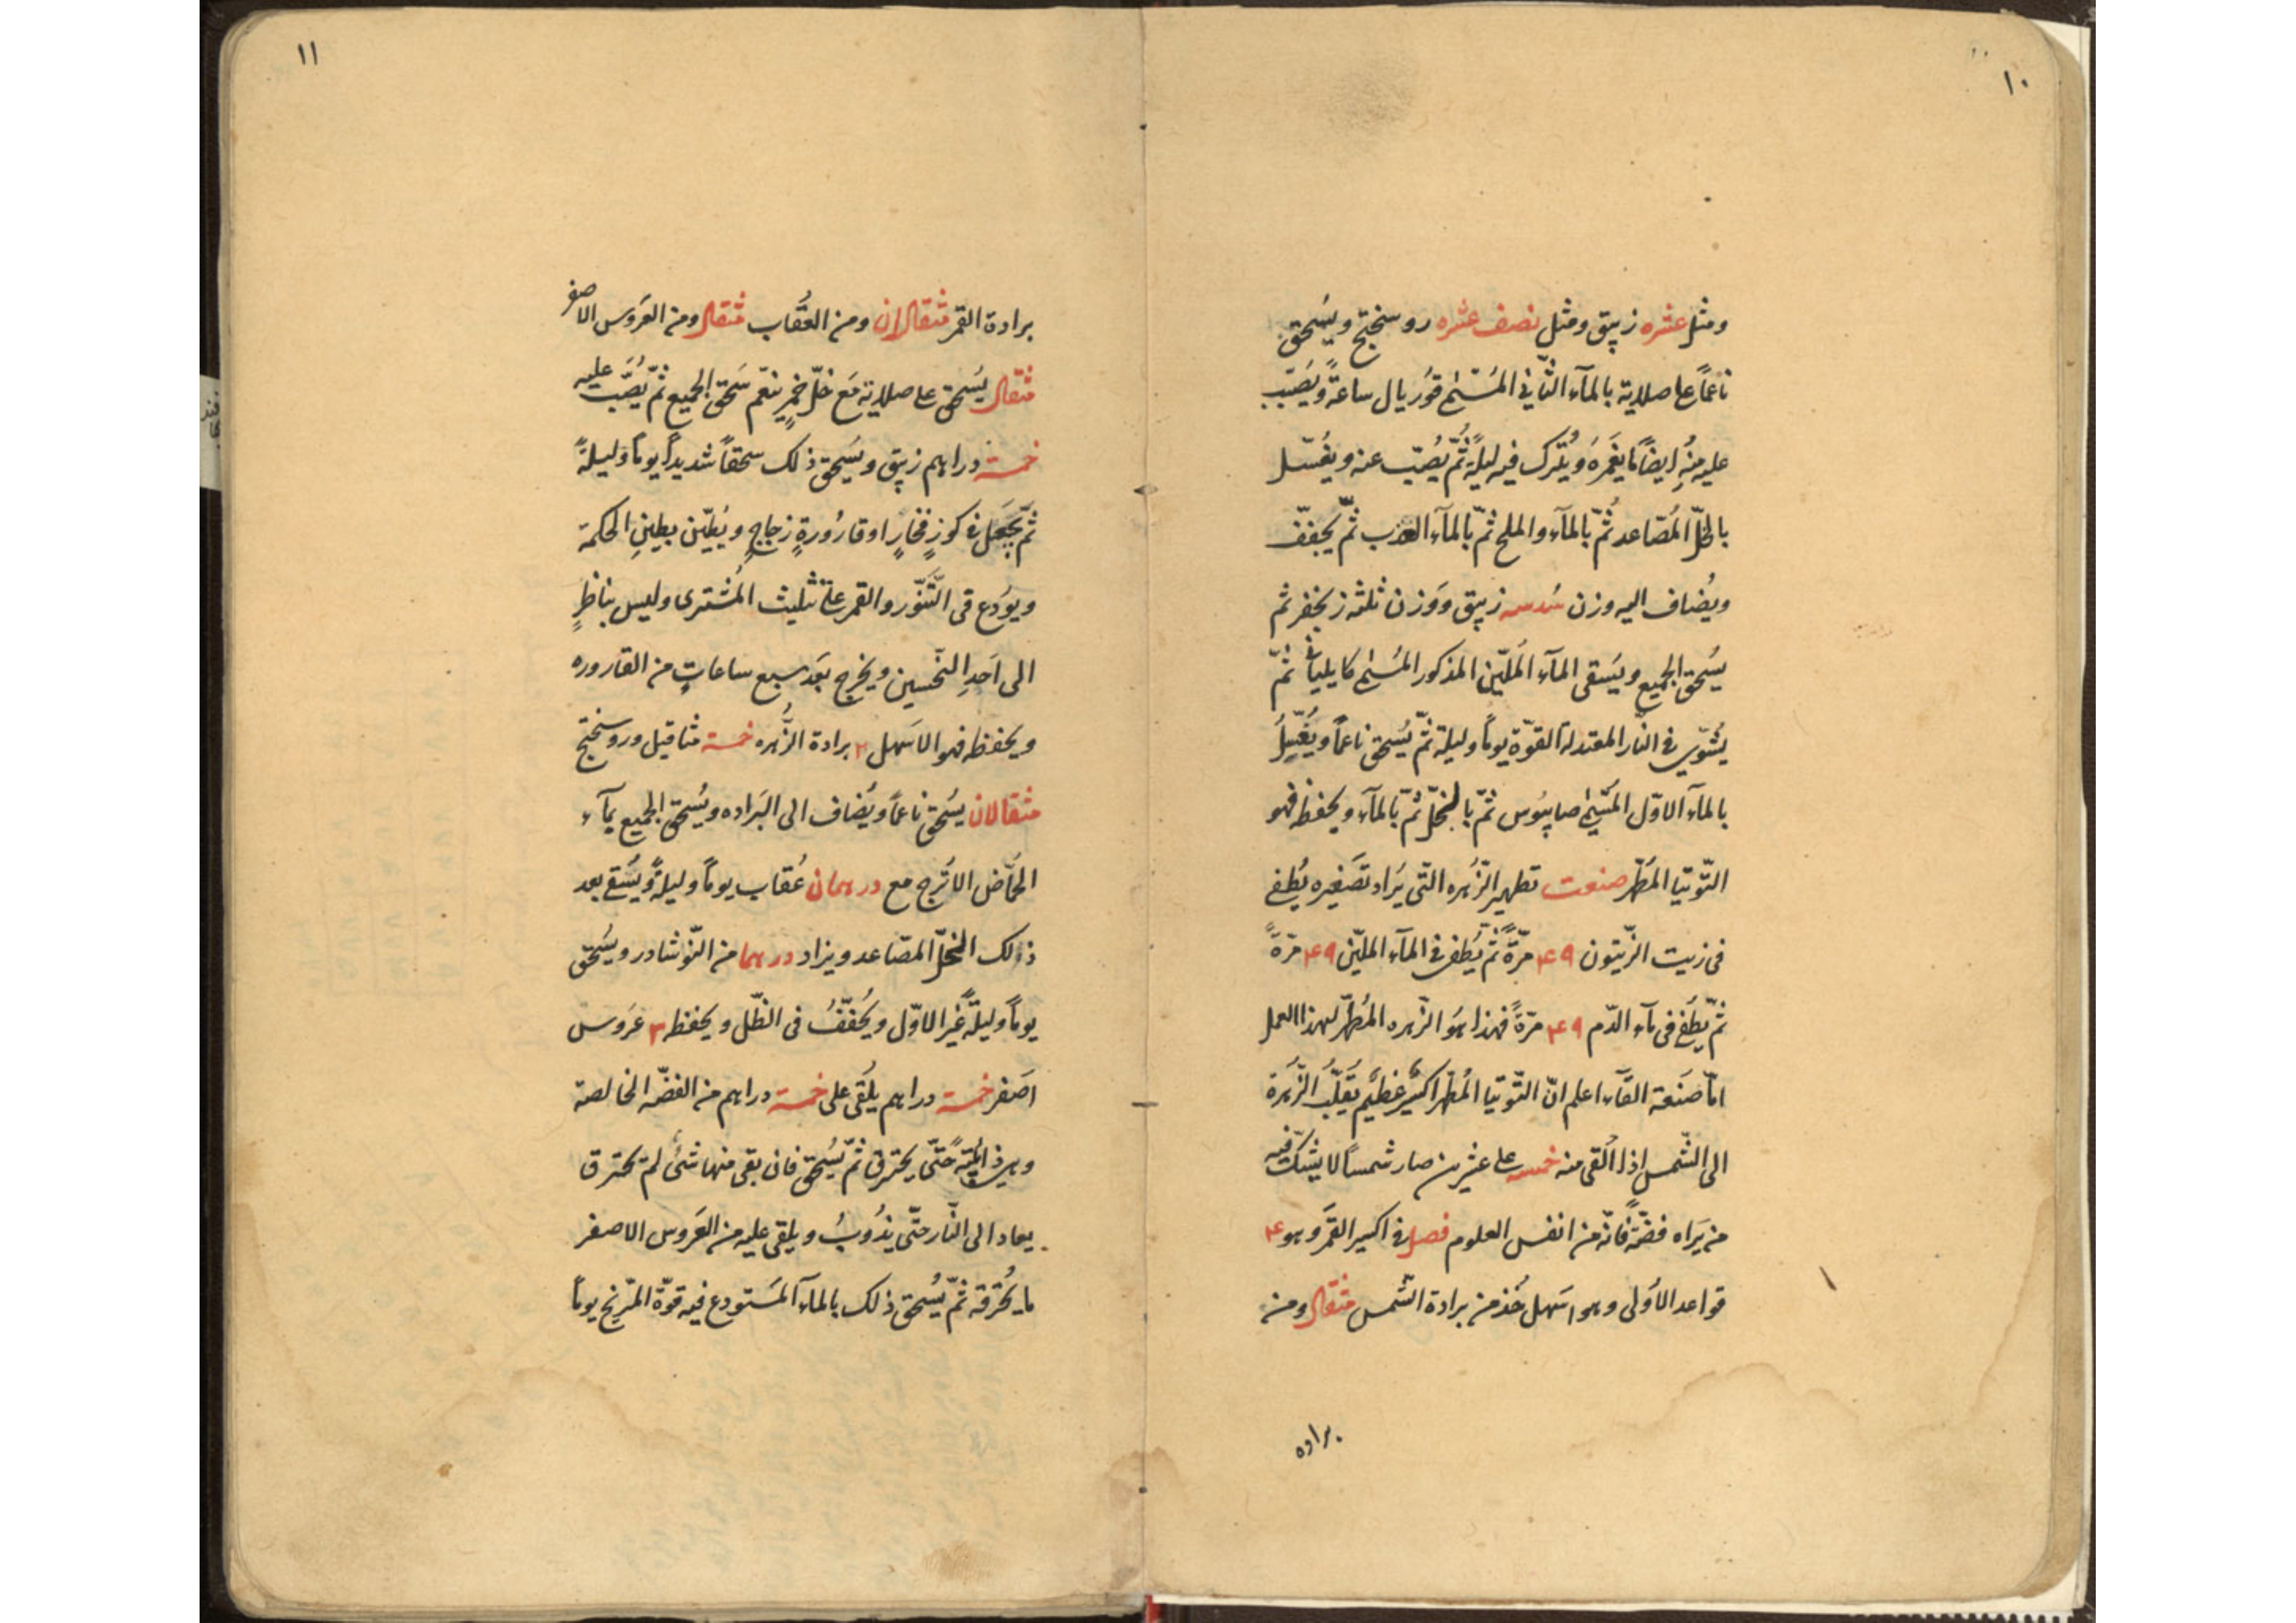 ١٠
ومثل عشره زيبق ومثل نصف عشره روسختج ويسحق
ناعماً على صلاية بالمآء الثّاني المُسَمّى قوُريال ساعةً ويَصُبّ
عليه مِنْهُ ايضاً مَا يَغمَرَهُ ويُترك فيه ليلةً ثُمّ يُصَبّ عنه ويغُسّل
بالخلّ المُصّاعد ثُمّ بالمآء والملح ثمّ بالمآء العذب ثمّ يجفّف
ويُضاف اليه وزن سُدسه زيبق وَوَزن ثلثه زنجفر ثم
يسَحق الجميع ويَسَقى المآء المُليّن المذكور المُسَمّى كايلياثا ثمّ
يُشوّي في النّار المعتدلة القوّة يوماً وليلة ثمّ يُسَحق ناعماً ويُغَسّلُ
بالمآء الاوّل المُسَمّى صابيوُس ثمّ بالخلّ ثمّ بالمآء ويحفظ فهو
التّوتيا المُطهّر صنعت تطهير الزُّهره التّى يَراد تصَغيره يُطفى
فى زيت الزّيتون ٤٩ مرّةً ثمّ يُطفى في المآء المليّن ٤٩ مرّةً
ثمّ يطَفى فى مآء الدّم ٤٩ مرّةً فهذا هَوَ الزّهره المُطهّر لهذا العمل
امّا صَنعة القآء اعلم انّ التّوتيا المُطهّر اكسيرٌ عَظيم يَقلّبُ الزّهَرة
الى الشّمس اذا اُلقى منه خمسه على عشرين صار شمساً لا يشكّ فيه
من يَراه فضّةً فانّه من انفس العلوم فصل في اكسير القمَر وهو ٤
قواعد الأوُلى وهو اسَهل خُذ من برادة الشّمس مثقال ومن
براده
١١
برادة القمر مثقالان ومن العُقاب مثقال ومن العَروس الاصفر
مثقال يسَحق على صلاية مَع خلّ خمرٍ ينعّم سَحق الجميع ثمّ يُصَبّ عليه
خمسة دراهم زيبق ويسُحق ذلك سحقاً شديداً يوماً وَليلةً
ثمّ يجَعَل في كوزِ فخّارٍ او قارُورةٍ زجاجٍ ويُطيّن بطينِ الحكمة
ويوُدَع فى التّنّور والقمر على تثليث المُشترى وليس بناظرٍ
الى اَحَدِ النّحسين ويخرج بعَد سبع ساعاتٍ من القاروره
ويحفظ فهو الاسَهل ٢ برادة الزُّهره خمسة مثاقيل وروسختج
مثقالان يسُحق ناعماً ويُضاف الى البَراده ويُسَحق الجميع بمآء
الحُمّاض الاتُرج مع درهمان عُقاب يوماً وليلةً ويُسَقى بعد
ذلك الخلّ المصّاعد ويزاد درهما من النّوشادر ويسُحق
يوماً وليلةً غَير الاوّل ويُجَفّفُ فى الظّل ويحفظ ٣ عَروس
اصَفر خمسة دراهم يلُقى على خمسة دراهم من الفضّه الخالصة
حتّى يحترق ثمّ يسُحق فان بقى منها شئ لم تحترق
يعاد الى النّار حتّى يذُوبُ ويلقى عليه من العَروس الاصفر
ما يُحرقه ثمّ يُسُحق ذلك بالمآء المَستودع فيه قوّة المّريخ يوماً